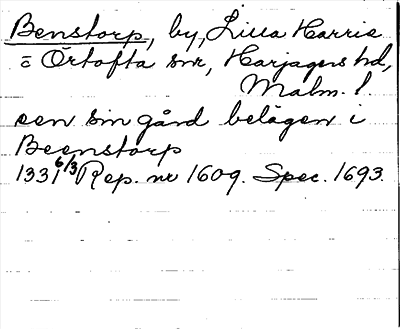 Benstorp, by, Lilla Harrie
o Örtofta snr, Harjagers hd,
Malm. l.
een sin gård belägen i
Beenstorp
1331 6/3 Rep. nr 1609. Spec. 1693.